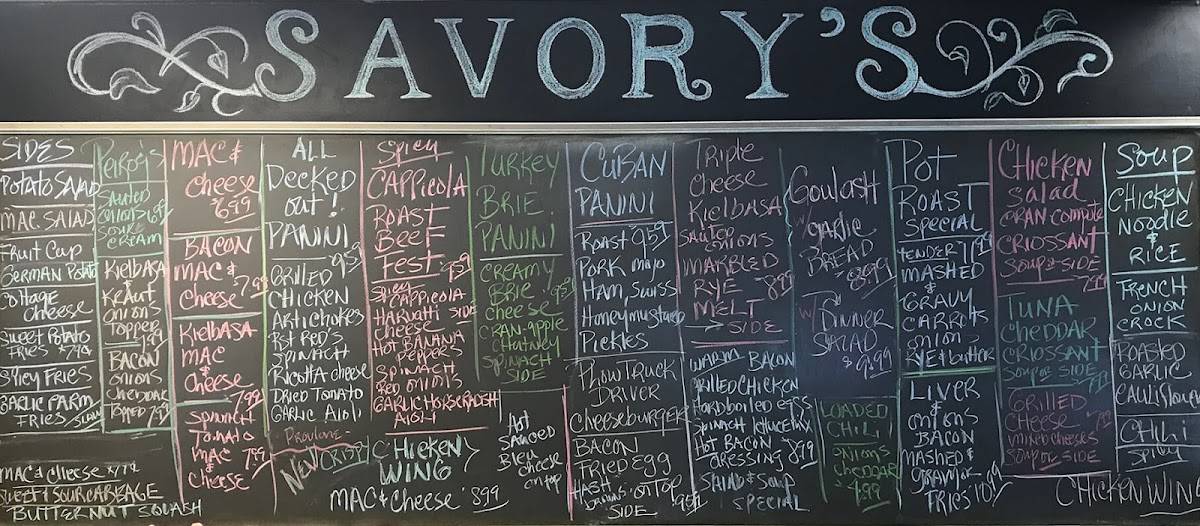 SAVORY'S
SIDES
POTATO SALAD
MAC SALAD
FRUIT CUP
GERMAN POTATO
COTTAGE
CHEESE
SWEET POTATO
FRIES
SPICY FRIES
GARLIC PARM
FRIES
MAC & CHEESE
SWEET & SOUR CABBAGE
BUTTERNUT SQUASH
SAUTED
ONIONS
SOUR
CREAM
KIELBASA
KRAUT
ONIONS
TOPPED
BACON
ONIONS
CHEDDAR
TOPPED
MAC &
CHEESE
6.99
BACON
MAC &
CHEESE
7.99
KIELBASA
MAC
&
CHEESE
7.99
SPINACH
TOMATO
MAC 7.99
&
CHEESE
ALL
DECKED
OUT!
PANINI
9.59
GRILLED
CHICKEN
ARTICHOKES
RST RED'S
SPINACH
RICOTTA CHEESE
DRIED TOMATO
GARLIC AIOLI
PROVLONE
NEW
CRISPY
CHICKEN
WING
MAC & CHEESE 8.99
HOT
SAUCED
BLEU
CHEESE
ON TOP
SPICY
CAPPICOLA
ROAST
BEEF
FEST
9.59
SPICY
CAPPICOLA
HAVARTI SIDE
CHEESE
HOT BANANA
PEPPERS
SPINACH
RED ONIONS
GARLIC HORSERADISH
TURKEY
BRIE
PANINI
CREAMY
BRIE 9.59
CHEESE
CRAN-APPLE
CHUTNEY
SPINACH
SIDE
CUBAN
PANINI
ROAST 9.59
PORK MOJO
HAM, SWISS
HONEY MUSTARD
PICKLES
PLOW TRUCK
DRIVER
CHEESEBURGER
BACON
FRIED EGG
HASH
ON TOP
SIDE 9.59
TRIPLE
CHEESE
KIELBASA
SAUTED
ONIONS
MARBLED
RYE 8.99
MELT
→ SIDE
WARM BACON
GRILLED CHICKEN
HARDBOILED EGGS
SPINACH LETTUCE MIX
HOT BACON
DRESSING 8.79
SALAD & SOUP
SPECIAL
GOULASH
W/
GARLIC
BREAD
8.99
W/ DINNER
SALAD
$9.99
LOADED
CHILI
ONIONS
CHEDDAR
4.99
POT
ROAST
SPECIAL
TENDER 11.99
MASHED
&
GRAVY
CARROTS
ONIONS
RYE & BUTTER
LIVER
&
ONIONS
BACON
MASHED &
GRAVY OR
FRIES 10.99
CHICKEN
SALAD
CRAN COMPOTE
CRIOSSANT
SOUP OR SIDE
7.99
TUNA
CHEDDAR
CRIOSSANT
SOUP OR SIDE
GRILLED
CHEESE
MIXED CHEESES
SOUP OR SIDE
SOUP
CHICKEN
NOODLE
&
RICE
FRENCH
ONION
CROCK
ROASTED
GARLIC
CAULIFLOWER
CHILI
SPICY
CHICKEN WING